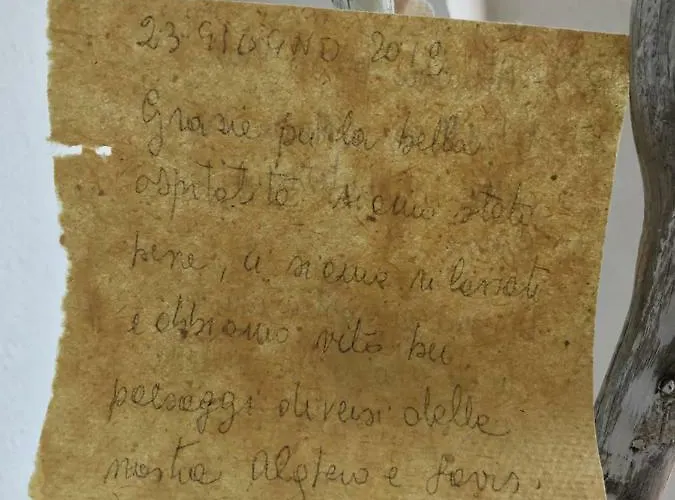 23 GIUGNO 2019
Grazie per la bella
ospitalità siamo stati
bene, ci siamo rilassati
e abbiamo visto bei
paesaggi diversi dalla
nostra Alghero e